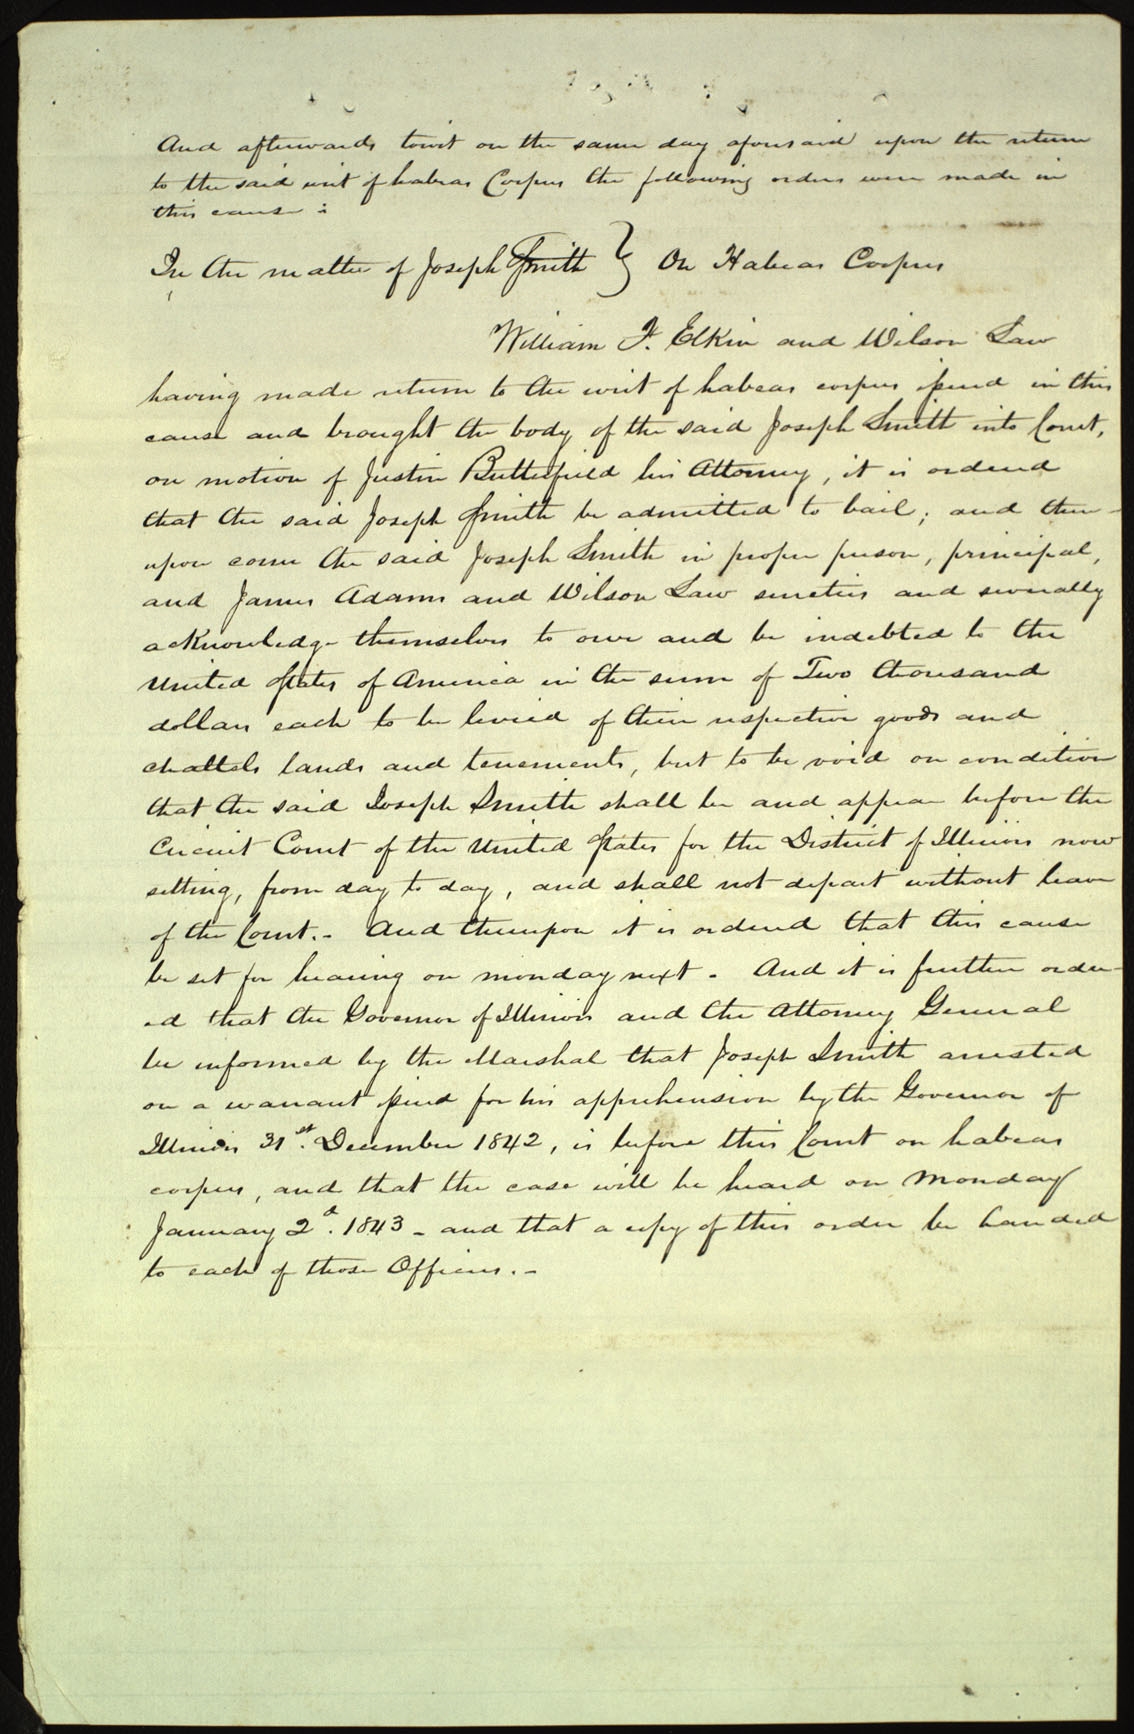 And afterwards towit on the same day aforesaid upon the return
to the said writ of habeas Corpus the following orders were made in
this cause :
In the matter of Joseph Smith } On Habeas Corpus
William F. Elkin and Wilson Law
having made return to the writ of habeas corpus issued in this
cause and brought the body of the said Joseph Smith into Court,
on motion of Justin Butterfield his Attorney, it is ordered
that the said Joseph Smith be admitted to bail; and there-
upon come the said Joseph Smith in proper person, principal,
and James Adams and Wilson Law sureties and severally
acknowledge themselves to owe and be indebted to the
United States of America in the sum of Two thousand
dollars each to be levied of their respective goods and
chattels lands and tenements, but to be void on condition
that the said Joseph Smith shall be and appear before the
Circuit Court of the United States for the District of Illinois now
sitting, from day to day, and shall not depart without leave
of the Court.- And thereupon it is ordered that this cause
be set for hearing on monday next - And it is further order-
ed that the Governor of Illinois and the Attorney General
be informed by the Marshal that Joseph Smith arrested
on a warrant issued for his apprehension by the Governor of
Illinois 31st. December 1842, is before this Court on habeas
corpus, and that the case will be heard on Monday
January 2d. 1843 - and that a copy of this order be handed
to each of those Officers.-